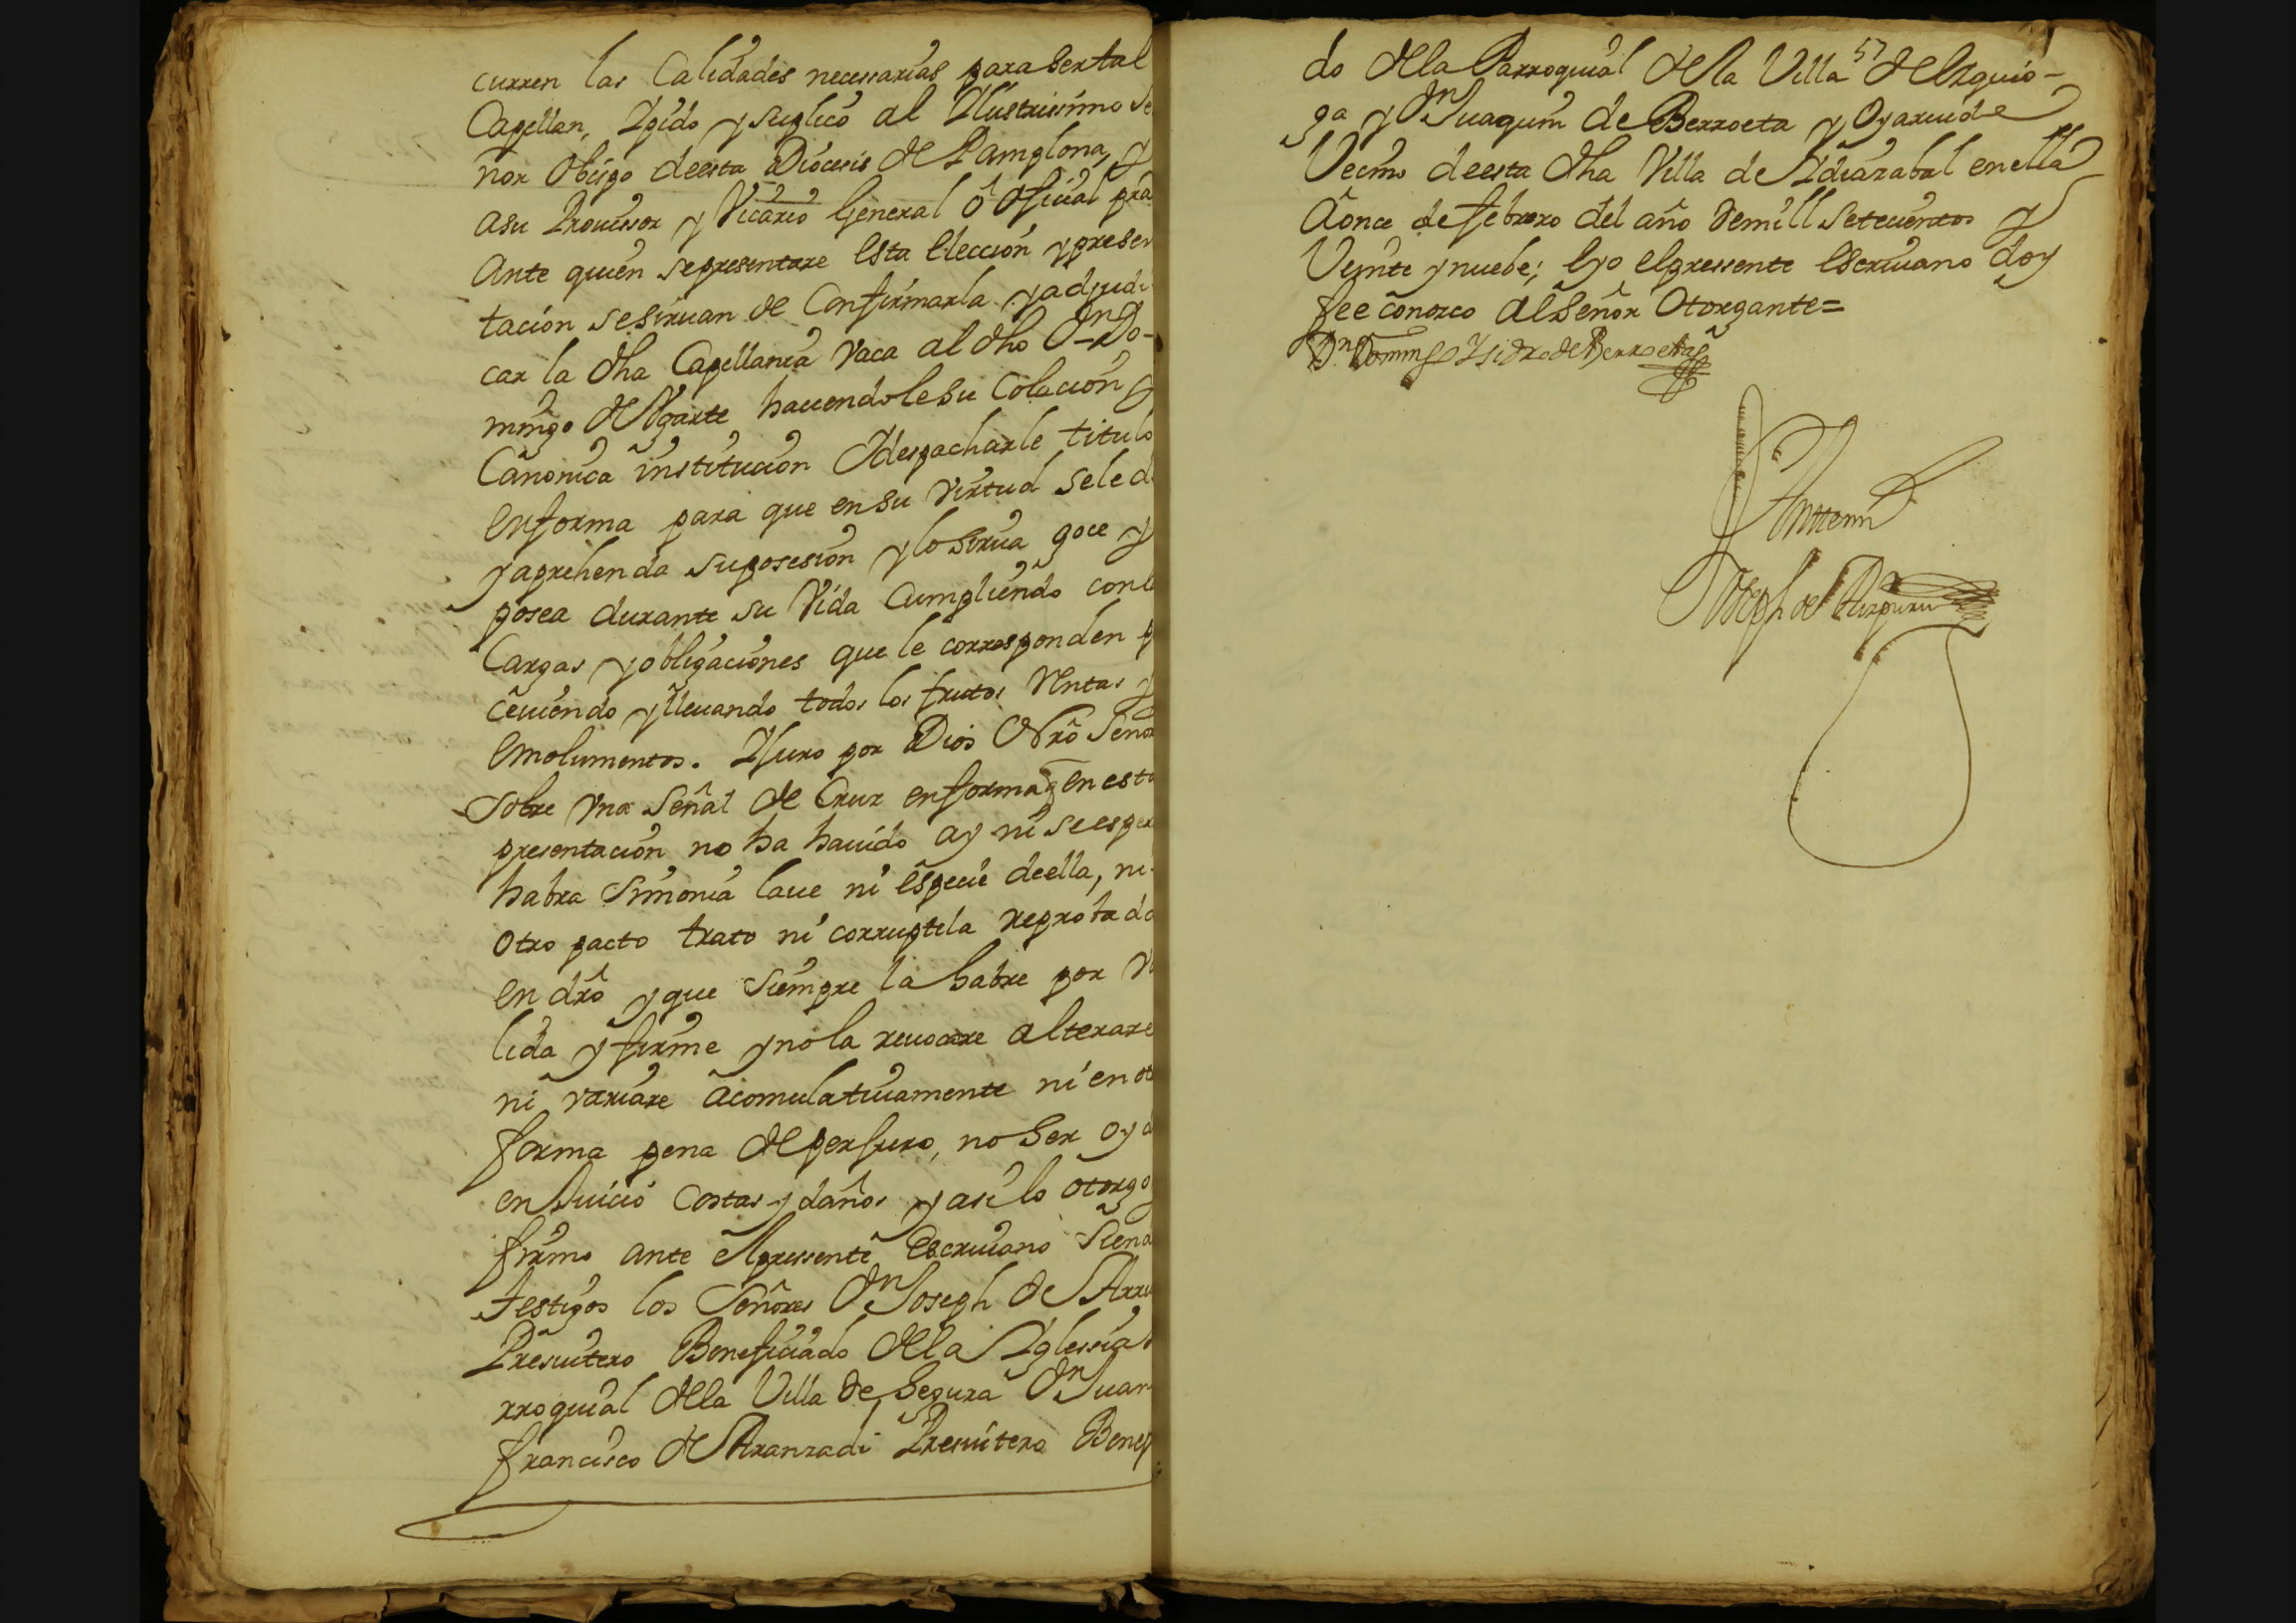 curren las Calidades necessarias para ser tal
Capellan, Ypido y suplico al Yllustrissimo Se
ñor Obispo de esta Diocesis de Pamplona, y
a su Provissor y Vicario General ô Oficial pra
Ante quien se presentare esta eleccion y presen
tacion se siruan de Confirmarla y adjudi
car la dha Capellania vaca al dho Dn Do-
mingo de Ugarte haciendole su Colacion y
Canonica institucion Y despacharle titulo
en forma para que en su virtud se le d
y aprehenda su posesion y lo sirua goce y
posea durante su Vida Cumpliendo con l
Cargas y obligaciones que le corresponden p
ciuiendo y lleuando todos los frutos Rentas y
emolumentos. Y Juro por Dios Nrô Señor
sobre vna Señal de Cruz en forma q en esta
presentacion no ha hauido ay ni se esper
habra Simonia laue ni espeçie de ella, ni
otro pacto trato ni corruptela reprobado
en drô y que siempre la habre por va
lida y firme y no la reuocare alterare
ni variare acomulatiuamente ni en ot
forma pena de perjuro, no ser oyd
en Juicio costas y daños y asi lo otorgo y
firmo ante el pressente Escriuano Siend
testigos los Señores Dn Joseph de Arru
Presuitero Beneficiado de la Yglessia
rroquial de la Villa de Segura Dn Juan
francisco de Aranzadi Presuitero Benef
57
do de la Parroquial de la Villa de Ezquio-
ga y Dn Juaquin de Berroeta y Oyaruide
Vecino de esta dha Villa de Ydiazabal en ella
â once de febrero del año de mill setecientos y
Veinte y nuebe; e yo el pressente Escriuano doy
fee conozco al Señor Otorgante=
Dn Domingo Ysidro de Berroeta
Antemi
Joseph de Aizpuru